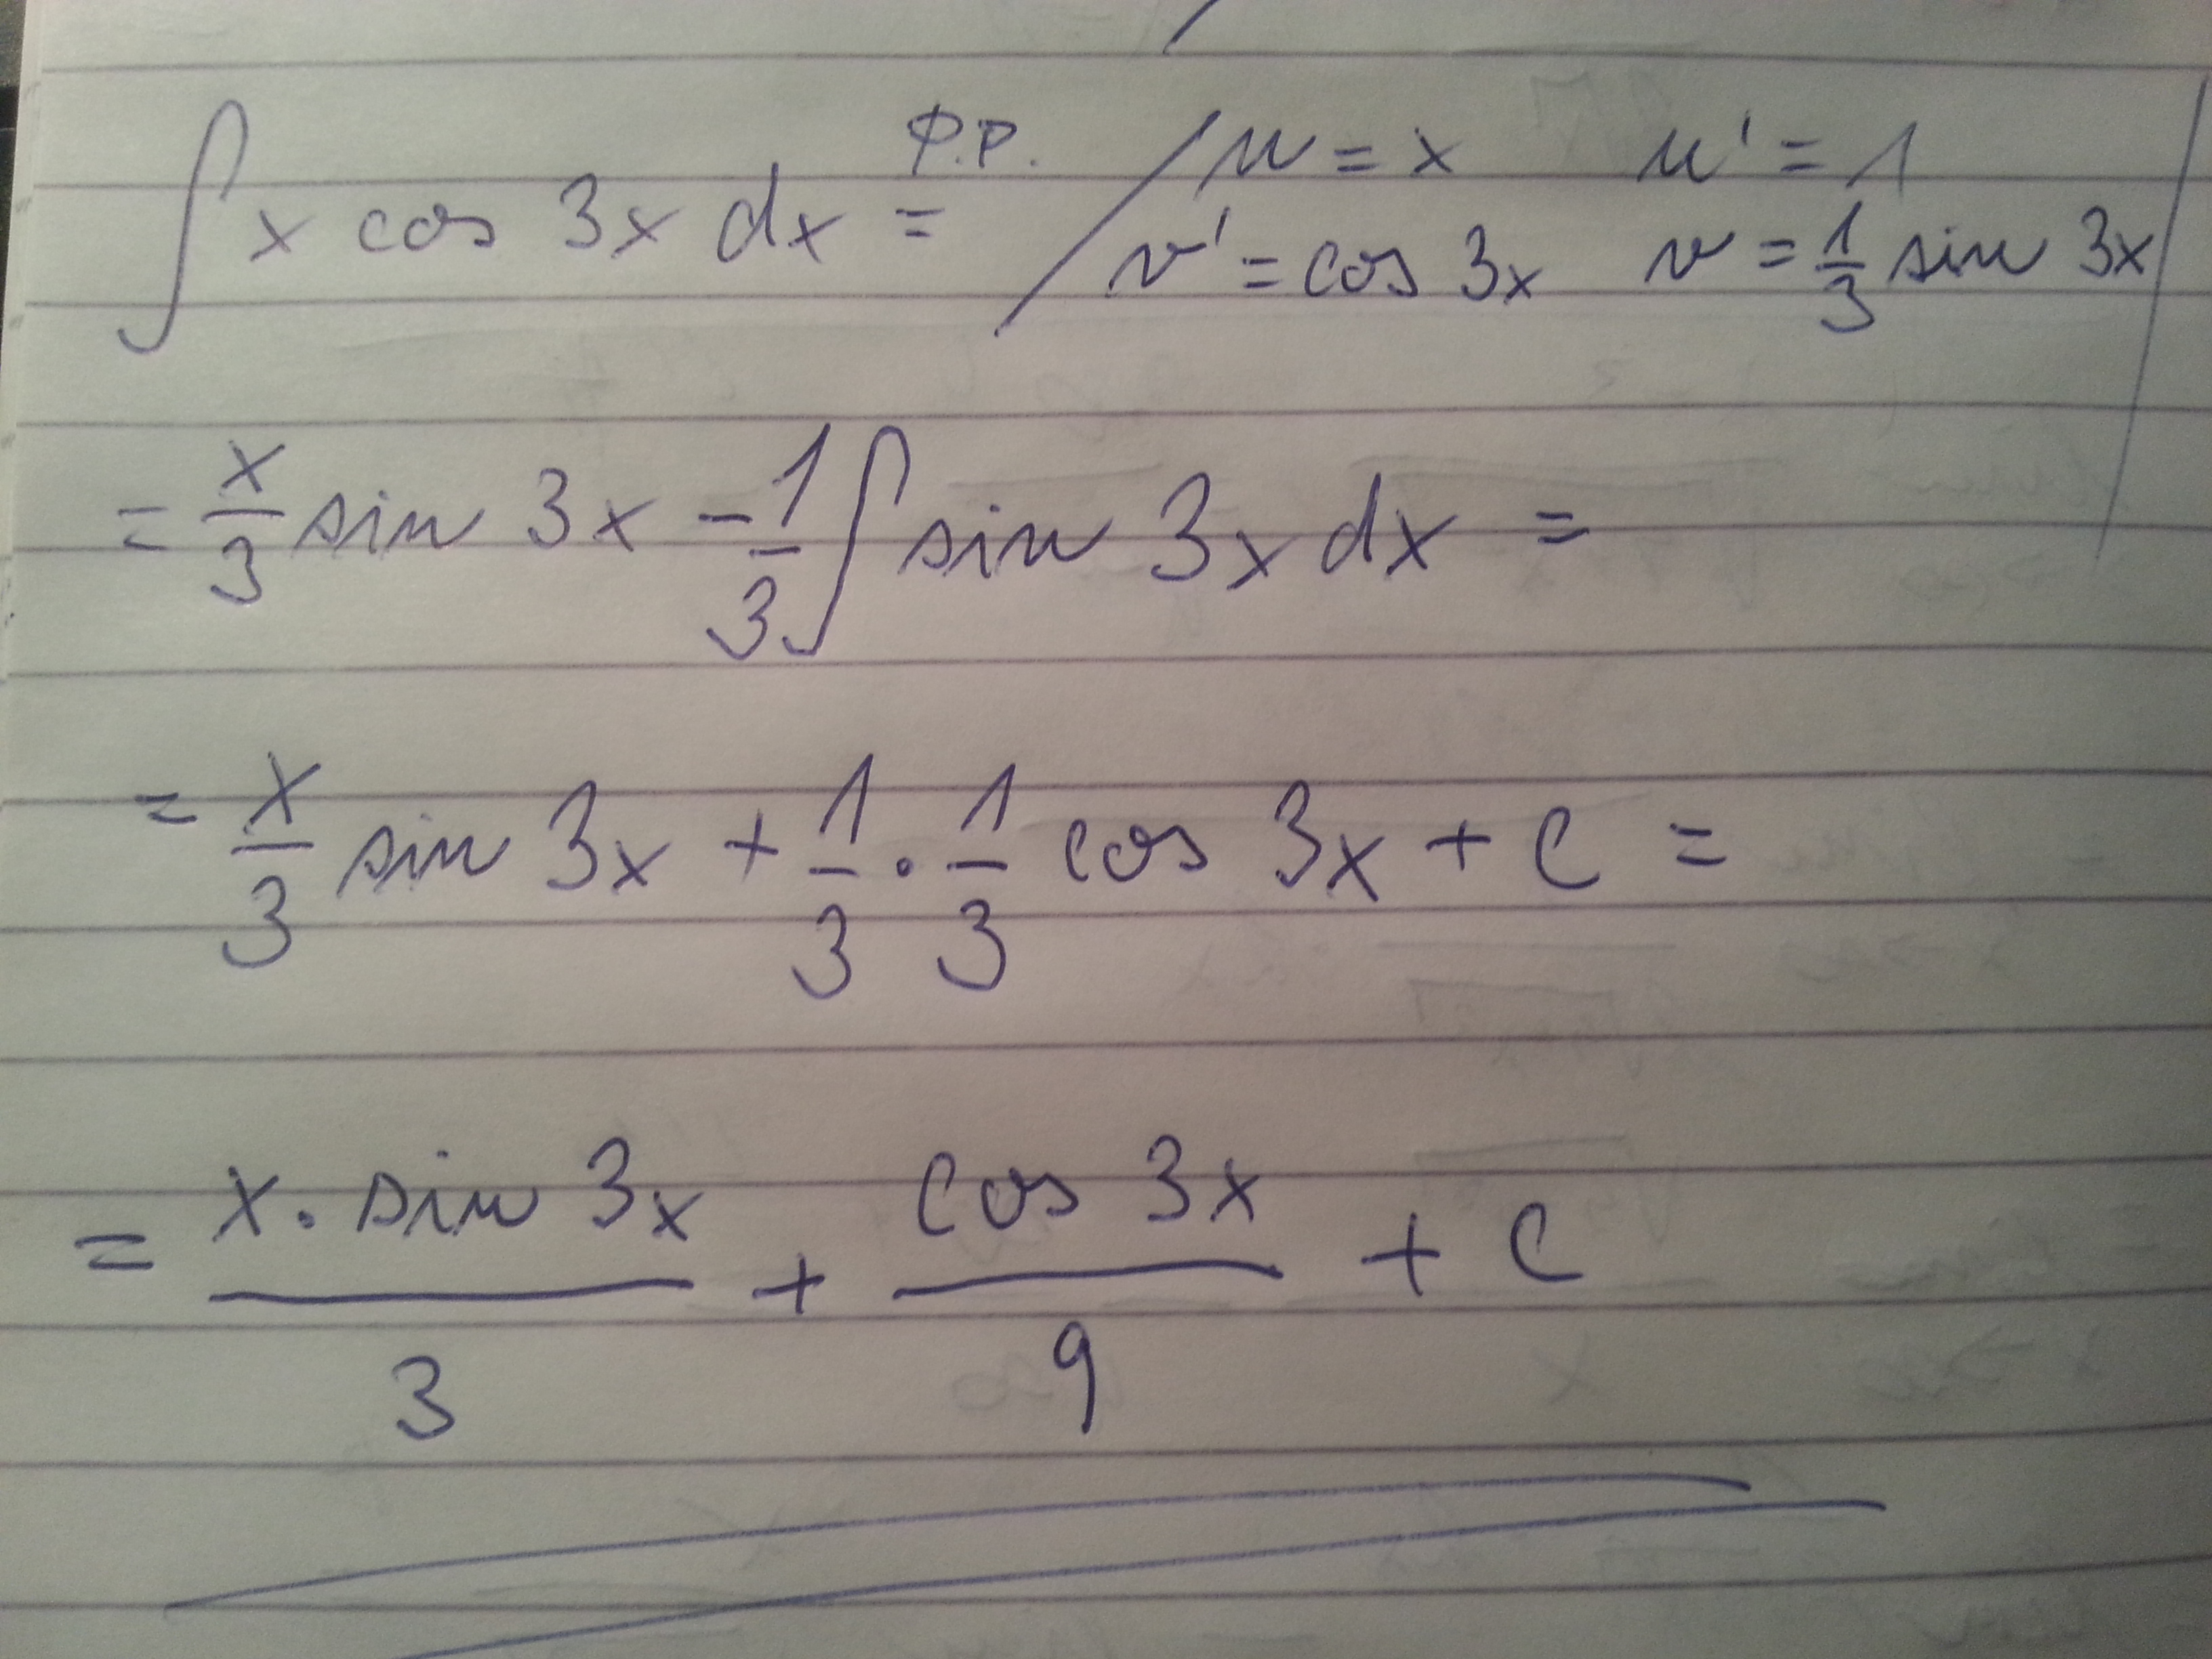 ∫ x cos 3x dx = p.p. / u = x u' = 1
v' = cos 3x v = 1/3 sin 3x |
= x/3 sin 3x - 1/3 ∫ sin 3x dx =
= x/3 sin 3x + 1/3 · 1/3 cos 3x + c =
= x · sin 3x / 3 + cos 3x / 9 + c